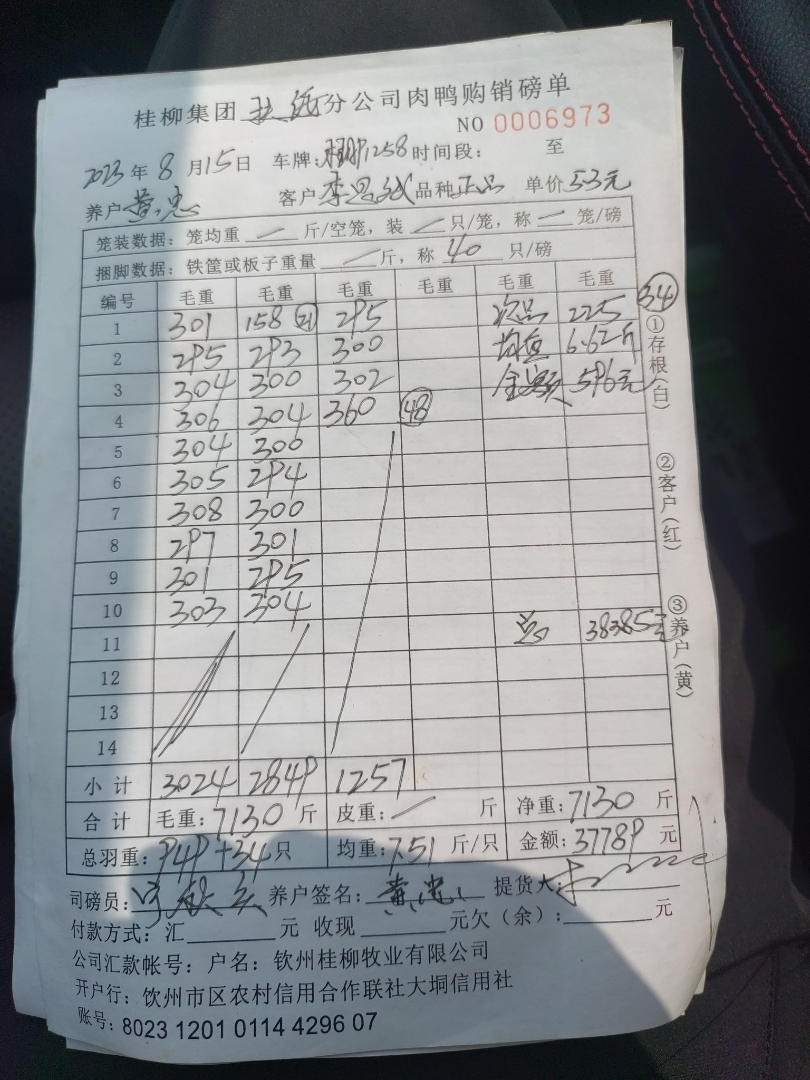 桂柳集团 分公司肉鸭购销磅单
NO 0006973
2023年8月15日 车牌: 1258 时间段: 至
养户 黄忠 客户 李 品种 正品 单价 5.3元
笼装数据: 笼均重 — 斤/空笼, 装 — 只/笼, 称 — 笼/磅
捆脚数据: 铁筐或板子重量 — 斤, 称 40 只/磅
编号 毛重 毛重 毛重 毛重 毛重 毛重
1 301 158 (21) 295 次品 225 (34)
2 295 293 300 均重 6.62斤
3 304 300 302 金额 596元
4 306 304 360 (48)
5 304 300
6 305 294
7 308 300
8 297 301
9 301 295
10 303 304
11 总 38385元
12
13
14
小计 3024 2849 1257
合计 毛重: 7130 斤 皮重: — 斤 净重: 7130 斤
总羽重: 949+34 只 均重: 7.51 斤/只 金额: 37789 元
司磅员: 养户签名: 黄忠 提货人:
付款方式: 汇 元 收现 元欠(余): 元
公司汇款帐号: 户名: 钦州桂柳牧业有限公司
开户行: 钦州市区农村信用合作联社大垌信用社
账号: 8023 1201 0114 4296 07
①存根(白)
②客户(红)
③养户(黄)